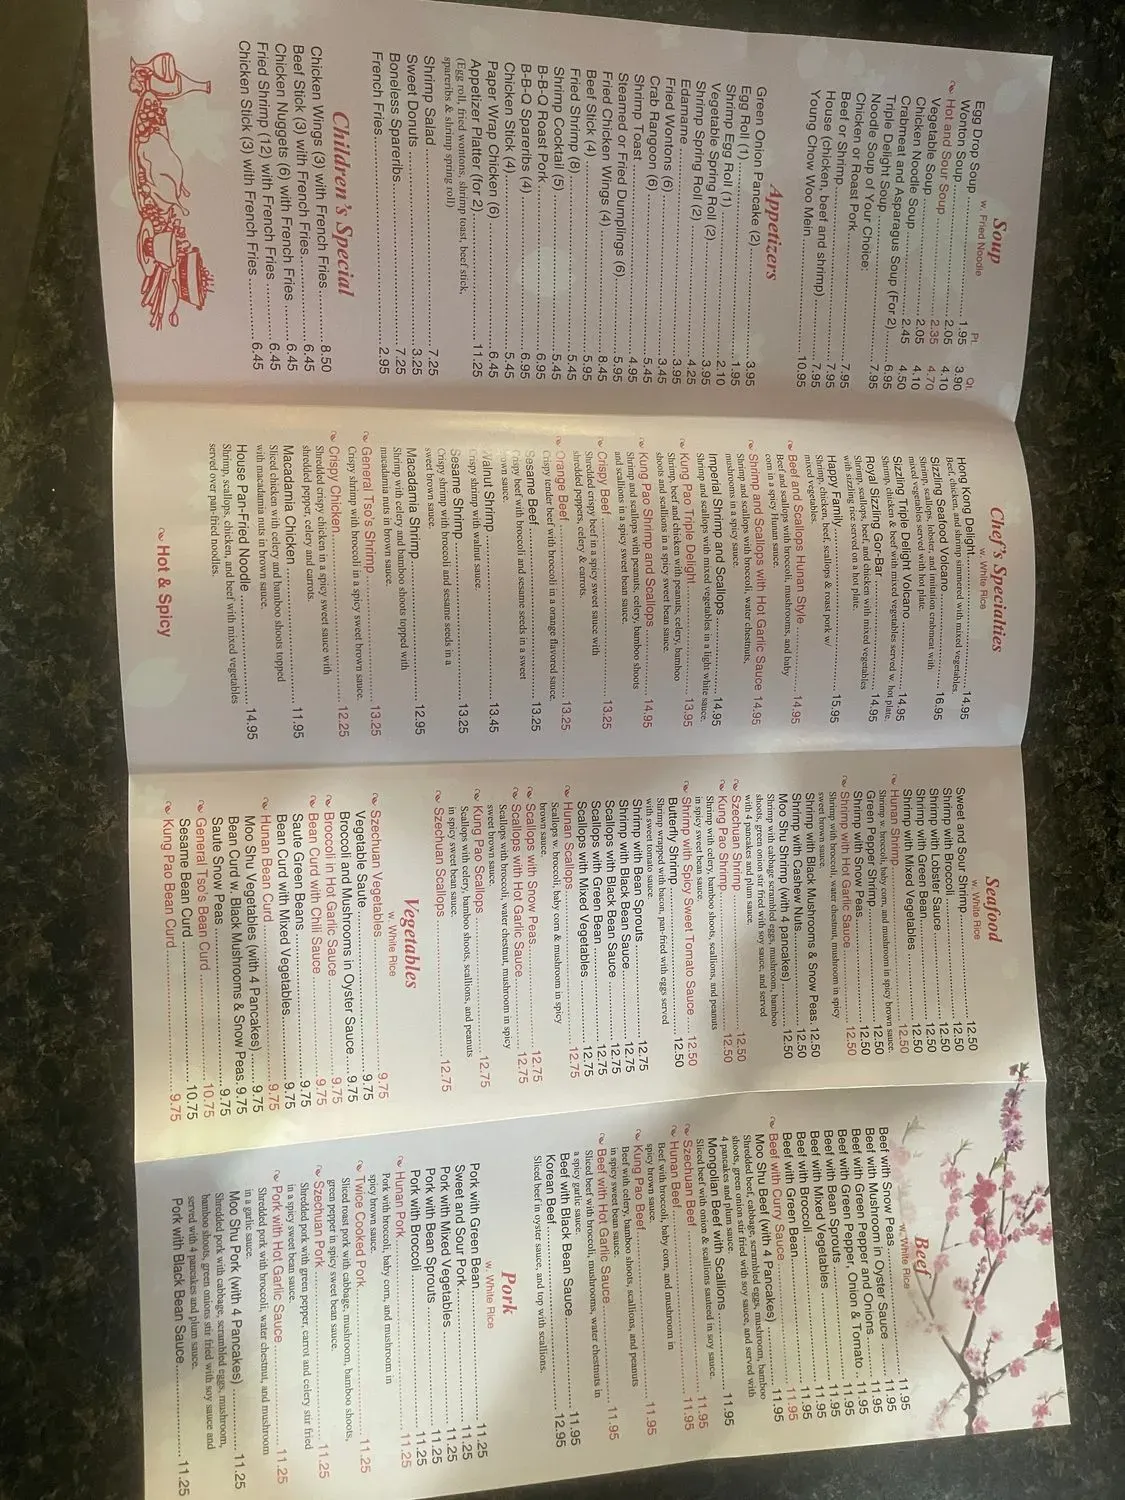 Soup
w. Fried Noodle
Pt. Qt.
Egg Drop Soup
Wonton Soup 1.95 3.90
Hot and Sour Soup 2.05 4.10
Vegetable Soup 2.35 4.70
Chicken Noodle Soup 2.05 4.10
Crabmeat and Asparagus Soup (For 2) 2.45 4.50
Triple Delight Soup 6.95
Noodle Soup of Your Choice:
Chicken or Roast Pork 7.95
Beef or Shrimp 7.95
House (chicken, beef and shrimp) 7.95
Young Chow Woo Mein 10.95
Appetizers
Green Onion Pancake (2) 3.95
Egg Roll (1) 1.95
Shrimp Egg Roll (1) 2.10
Vegetable Spring Roll (2) 3.95
Shrimp Spring Roll (2) 4.25
Edamame 3.95
Fried Wontons (6) 3.45
Crab Rangoon (6) 5.45
Shrimp Toast 4.95
Steamed or Fried Dumplings (6) 5.95
Fried Chicken Wings (4) 8.45
Beef Stick (4) 5.95
Fried Shrimp (8) 5.45
Shrimp Cocktail (5) 5.45
B-B-Q Roast Pork 6.95
B-B-Q Spareribs (4) 6.95
Chicken Stick (4) 5.45
Paper Wrap Chicken (6) 6.45
Appetizer Platter (for 2) 11.25
(Egg roll, fried wontons, shrimp toast, beef stick,
spareribs & shrimp spring roll)
Shrimp Salad 7.25
Sweet Donuts 3.25
Boneless Spareribs 7.25
French Fries 2.95
Children's Special
Chicken Wings (3) with French Fries 8.50
Beef Stick (3) with French Fries 6.45
Chicken Nuggets (6) with French Fries 6.45
Fried Shrimp (12) with French Fries 6.45
Chicken Stick (3) with French Fries 6.45
Chef's Specialties
w. White Rice
Hong Kong Delight 14.95
Beef, chicken, and shrimp simmered with mixed vegetables.
Sizzling Seafood Volcano 16.95
Shrimp, scallops, lobster, and imitation crabmeat with
mixed vegetables served with hot plate.
Sizzling Triple Delight Volcano 14.95
Shrimp, chicken & beef with mixed vegetables served w. hot plate.
Royal Sizzling Gor-Bar 14.95
Shrimp, scallops, beef, and chicken with mixed vegetables
with sizzling rice served on a hot plate.
Happy Family 15.95
Shrimp, chicken, beef, scallops & roast pork w/
mixed vegetables.
Beef and Scallops Hunan Style 14.95
Beef and scallops with broccoli, mushrooms, and baby
corn in a spicy Hunan sauce.
Shrimp and Scallops with Hot Garlic Sauce 14.95
Shrimp and scallops with broccoli, water chestnuts,
mushrooms in a spicy sauce.
Imperial Shrimp and Scallops 14.95
Shrimp and scallops with mixed vegetables in a light white sauce.
Kung Pao Triple Delight 13.95
Shrimp, beef and chicken with peanuts, celery, bamboo
shoots and scallions in a spicy sweet bean sauce.
Kung Pao Shrimp and Scallops 14.95
Shrimp and scallops with peanuts, celery, bamboo shoots
and scallions in a spicy sweet bean sauce.
Crispy Beef 13.25
Shredded crispy beef in a spicy sweet sauce with
shredded peppers, celery & carrots.
Orange Beef 13.25
Crispy tender beef with broccoli in a orange flavored sauce.
Sesame Beef 13.25
Crispy beef with broccoli and sesame seeds in a sweet
brown sauce.
Walnut Shrimp 13.45
Crispy shrimp with walnut sauce.
Sesame Shrimp 13.25
Crispy shrimp with broccoli and sesame seeds in a
sweet brown sauce.
Macadamia Shrimp 12.95
Shrimp with celery and bamboo shoots topped with
macadamia nuts in brown sauce.
General Tso's Shrimp 13.25
Crispy shrimp with broccoli in a spicy sweet brown sauce.
Crispy Chicken 12.25
Shredded crispy chicken in a spicy sweet sauce with
shredded pepper, celery and carrots.
Macadamia Chicken 11.95
Sliced chicken with celery and bamboo shoots topped
with macadamia nuts in brown sauce.
House Pan-Fried Noodle 14.95
Shrimp, scallops, chicken, and beef with mixed vegetables
served over pan-fried noodles.
Hot & Spicy
Seafood
w. White Rice
Sweet and Sour Shrimp 12.50
Shrimp with Broccoli 12.50
Shrimp with Lobster Sauce 12.50
Shrimp with Green Bean 12.50
Shrimp with Mixed Vegetables 12.50
Hunan Shrimp 12.50
Shrimp w. broccoli, baby corn, and mushroom in spicy brown sauce.
Green Pepper Shrimp 12.50
Shrimp with Snow Peas 12.50
Shrimp with Hot Garlic Sauce 12.50
Shrimp with broccoli, water chestnut, mushroom in spicy
sweet brown sauce.
Shrimp with Black Mushrooms & Snow Peas 12.50
Shrimp with Cashew Nuts 12.50
Moo Shu Shrimp (with 4 pancakes) 12.50
Shrimp with cabbage scrambled eggs, mushroom, bamboo
shoots, green onion stir fried with soy sauce, and served
with 4 pancakes and plum sauce.
Szechuan Shrimp 12.50
Kung Pao Shrimp 12.50
Shrimp with celery, bamboo shoots, scallions, and peanuts
in spicy sweet bean sauce.
Shrimp with Spicy Sweet Tomato Sauce 12.50
Butterfly Shrimp 12.50
Shrimp wrapped with bacon, pan-fried with eggs served
with sweet tomato sauce.
Shrimp with Bean Sprouts 12.75
Shrimp with Black Bean Sauce 12.75
Scallops with Black Bean Sauce 12.75
Scallops with Green Bean 12.75
Scallops with Mixed Vegetables 12.75
Hunan Scallops 12.75
Scallops w. broccoli, baby corn & mushroom in spicy
brown sauce.
Scallops with Snow Peas 12.75
Scallops with Hot Garlic Sauce 12.75
Scallops with broccoli, water chestnut, mushroom in spicy
sweet brown sauce.
Kung Pao Scallops 12.75
Scallops with celery, bamboo shoots, scallions, and peanuts
in spicy sweet bean sauce.
Szechuan Scallops 12.75
Vegetables
w. White Rice
Szechuan Vegetables 9.75
Vegetable Saute 9.75
Broccoli and Mushrooms in Oyster Sauce 9.75
Broccoli in Hot Garlic Sauce 9.75
Bean Curd with Chili Sauce 9.75
Saute Green Beans 9.75
Bean Curd with Mixed Vegetables 9.75
Hunan Bean Curd 9.75
Moo Shu Vegetables (with 4 Pancakes) 9.75
Bean Curd w. Black Mushrooms & Snow Peas 9.75
Saute Snow Peas 9.75
General Tso's Bean Curd 10.75
Sesame Bean Curd 10.75
Kung Pao Bean Curd 9.75
Beef
w. White Rice
Beef with Snow Peas 11.95
Beef with Mushroom in Oyster Sauce 11.95
Beef with Green Pepper and Onions 11.95
Beef with Green Pepper, Onion & Tomato 11.95
Beef with Bean Sprouts 11.95
Beef with Mixed Vegetables 11.95
Beef with Broccoli 11.95
Beef with Green Bean 11.95
Beef with Curry Sauce 11.95
Moo Shu Beef (with 4 Pancakes) 11.95
Shredded beef, cabbage, scrambled eggs, mushroom, bamboo
shoots, green onion stir fried with soy sauce, and served with
4 pancakes and plum sauce.
Mongolian Beef with Scallions 11.95
Sliced beef with onion & scallions sauteed in soy sauce.
Szechuan Beef 11.95
Hunan Beef 11.95
Beef with broccoli, baby corn, and mushroom in
spicy brown sauce.
Kung Pao Beef 11.95
Beef with celery, bamboo shoots, scallions, and peanuts
in spicy sweet bean sauce.
Beef with Hot Garlic Sauce 11.95
Sliced beef with broccoli, mushrooms, water chestnuts in
a spicy garlic sauce.
Beef with Black Bean Sauce 11.95
Korean Beef 12.95
Sliced beef in oyster sauce, and top with scallions.
Pork
w. White Rice
Pork with Green Bean 11.25
Sweet and Sour Pork 11.25
Pork with Mixed Vegetables 11.25
Pork with Bean Sprouts 11.25
Pork with Broccoli 11.25
Hunan Pork 11.25
Pork with broccoli, baby corn, and mushroom in
spicy brown sauce.
Twice Cooked Pork 11.25
Sliced roast pork with cabbage, mushroom, bamboo shoots,
green pepper in spicy sweet bean sauce.
Szechuan Pork 11.25
Shredded pork with green pepper, carrot and celery stir fried
in a spicy sweet bean sauce.
Pork with Hot Garlic Sauce 11.25
Shredded pork with broccoli, water chestnut, and mushroom
in a garlic sauce.
Moo Shu Pork (with 4 Pancakes) 11.25
Shredded pork with cabbage, scrambled eggs, mushroom,
bamboo shoots, green onions stir fried with soy sauce and
served with 4 pancakes and plum sauce.
Pork with Black Bean Sauce 11.25